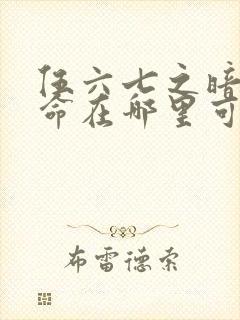 伍六七之暗
命在哪里可
布雷德索